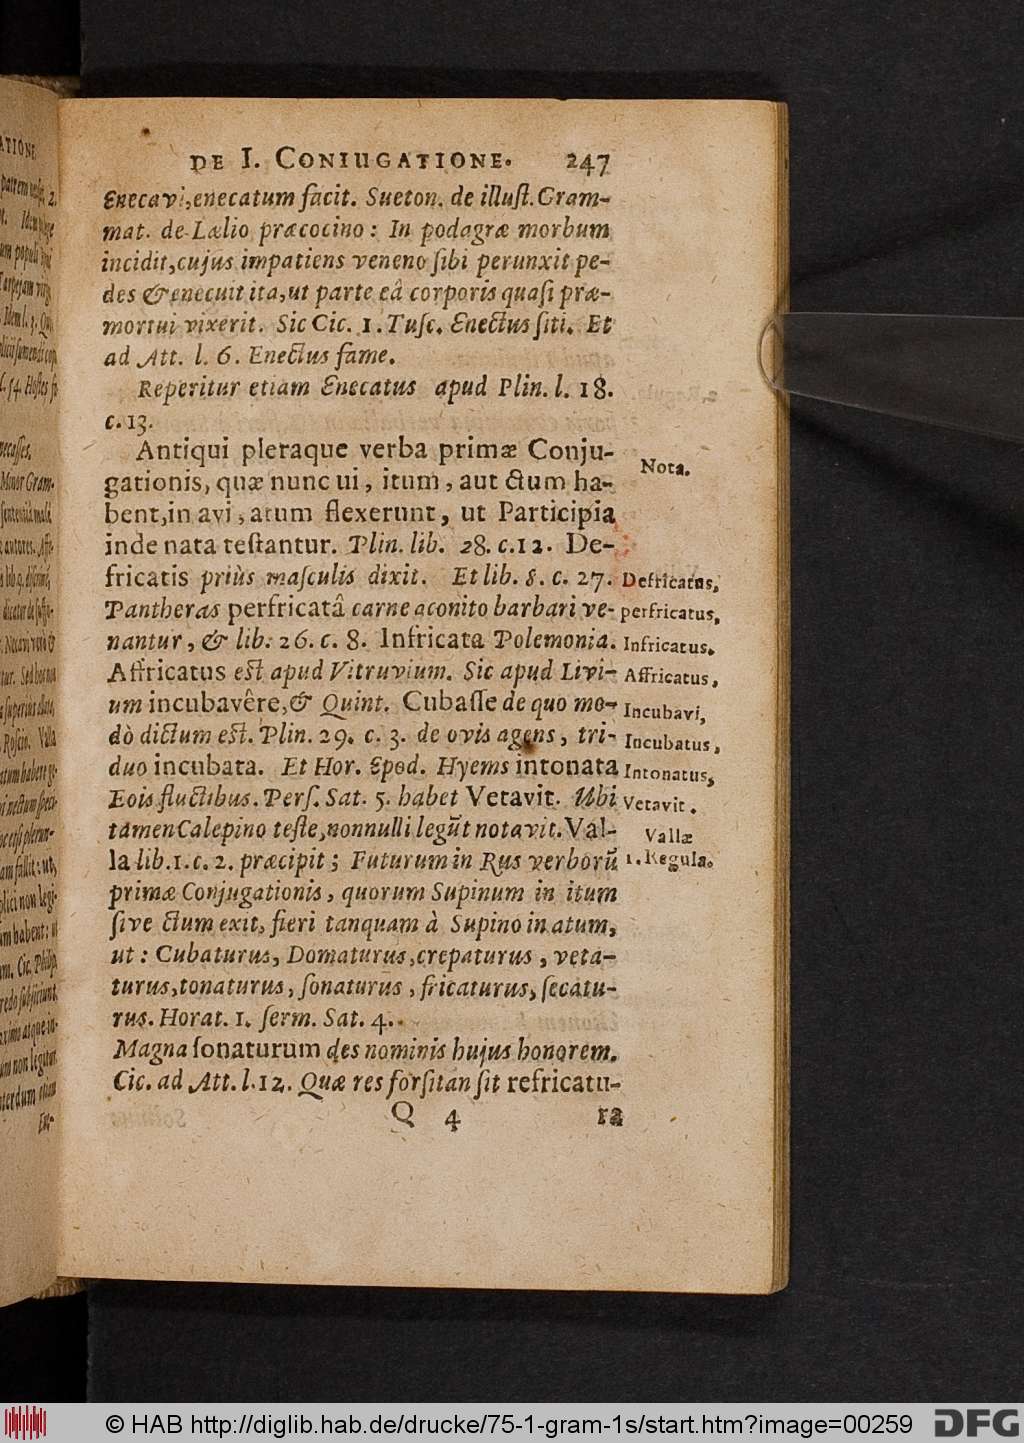 DE I. CONIUGATIONE. 247
Enecavi, enecatum facit. Sueton. de illuſt. Gram-
mat. de Lælio præcocino: In podagræ morbum
incidit, cujus impatiens veneno ſibi perunxit pe-
des & enecuit ita, ut parte eâ corporis quaſi præ-
mortui vixerit. Sic Cic. 1. Tuſc. Enectus ſiti. Et
ad Att. l. 6. Enectus fame.
Reperitur etiam Enecatus apud Plin. l. 18.
c. 13.
Antiqui pleraque verba primæ Conju-
gationis, quæ nunc ui, itum, aut ctum ha-
bent, in avi, atum flexerunt, ut Participia
inde nata teſtantur. Plin. lib. 28. c. 12. De-
fricatis priùs maſculis dixit. Et lib. 8. c. 27.
Pantheras perfricatâ carne aconito barbari ve-
nantur, & lib. 26. c. 8. Infricata Polemonia.
Affricatus eſt apud Vitruvium. Sic apud Livi-
um incubavêre, & Quint. Cubaſſe de quo mo-
dò dictum eſt. Plin. 29. c. 3. de ovis agens, tri-
duo incubata. Et Hor. Epod. Hyems intonata
Eois fluctibus. Perſ. Sat. 5. habet Vetavit. Ubi
tamen Calepino teſte, nonnulli legũt notavit. Val-
la lib. 1. c. 2. præcipit; Futurum in Rus verborũ
primæ Conjugationis, quorum Supinum in itum
ſive ctum exit, fieri tanquam à Supino in atum,
ut: Cubaturus, Domaturus, crepaturus, veta-
turus, tonaturus, ſonaturus, fricaturus, ſecatu-
rus. Horat. 1. ſerm. Sat. 4.
Magna ſonaturum des nominis hujus honorem.
Cic. ad Att. l. 12. Quæ res forſitan ſit refricatu-
Q 4 ra
Nota.
Defricatus,
perfricatus,
Infricatus.
Affricatus,
Incubavi,
Incubatus,
Intonatus,
Vetavit.
Vallæ
1. Regula.
© HAB http://diglib.hab.de/drucke/75-1-gram-1s/start.htm?image=00259
DFG